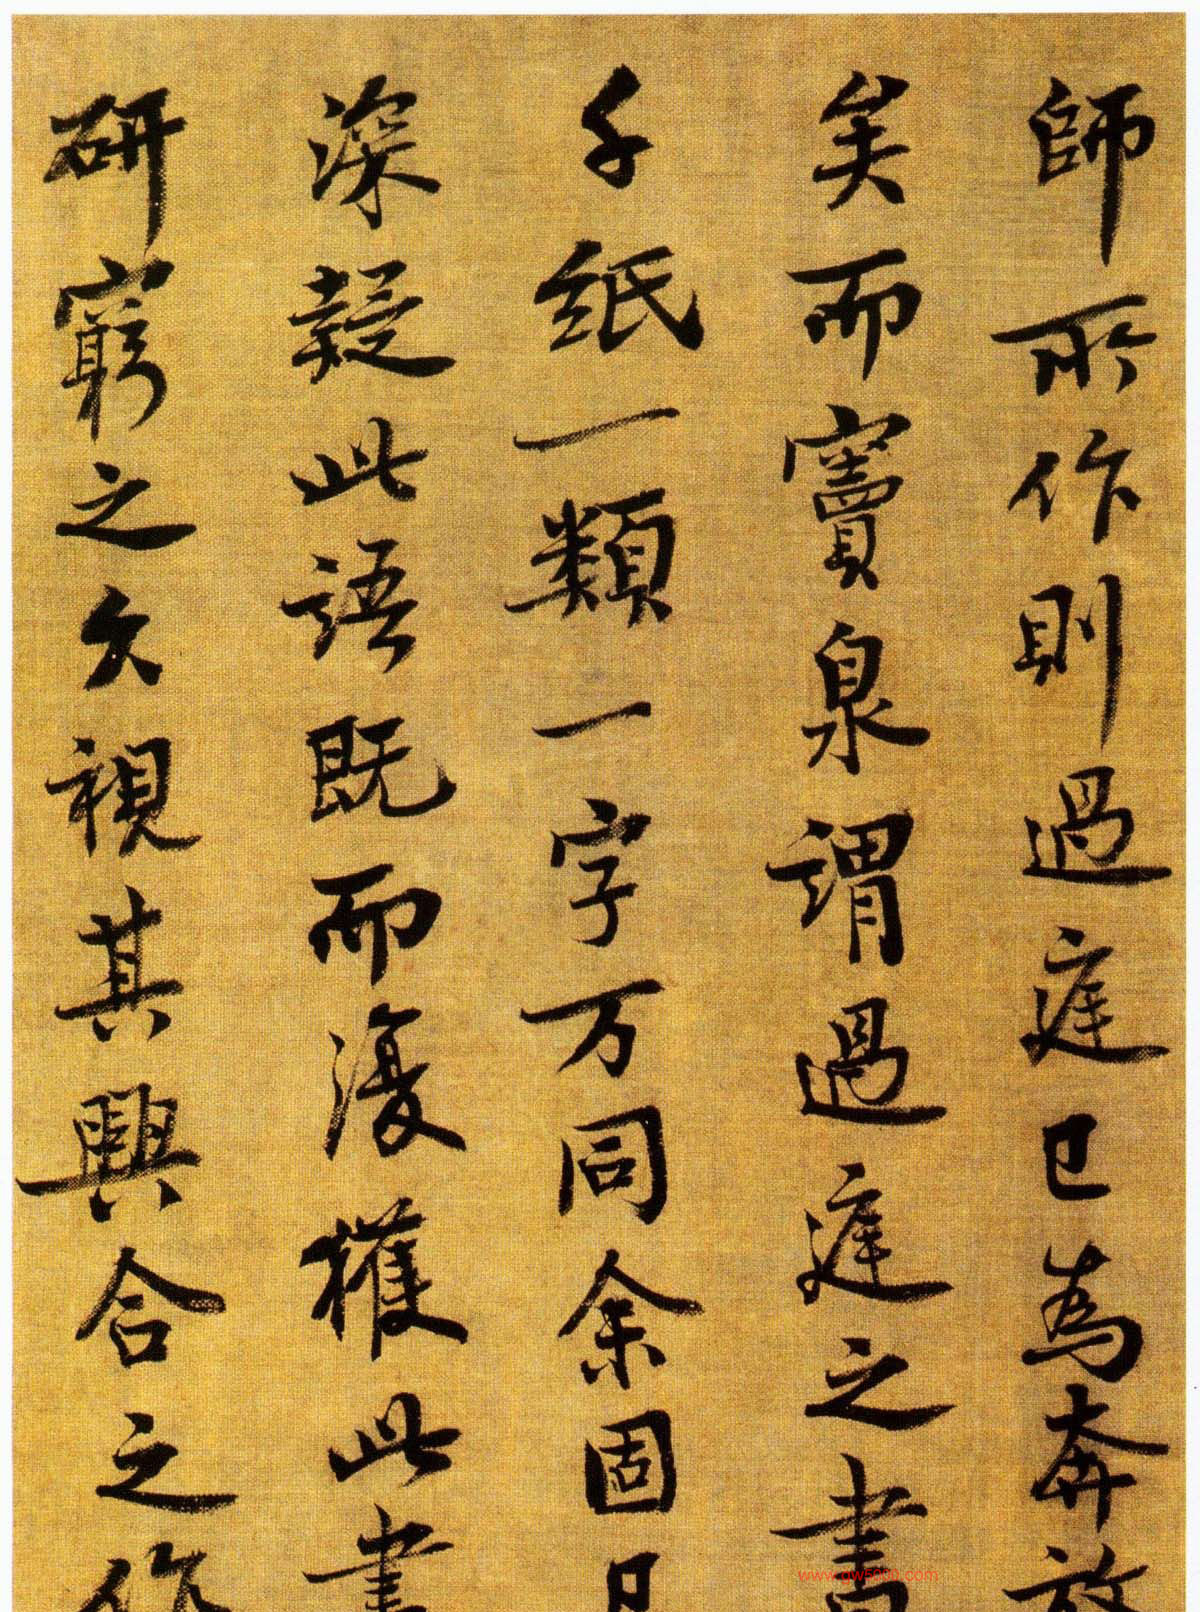 師所作則過庭已為奔放
矣而竇泉謂過庭之書
千紙一類一字万同余固
深疑此語既而復獲此書
研窮之久視其興合之作
www.gw5000.com